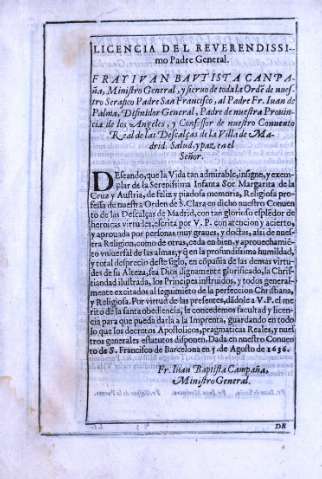 LICENCIA DEL REVERENDISSI-
mo Padre General.
FRAY IVAN BAVTISTA CANPA-
ña, Ministro General, y sieruo de toda la Ordẽ de nuestro
Serafico Padre San Francisco, al Padre Fr. Iuan de
Palma, Difinidor General, Padre de nuestra Prouin-
cia de los Angeles, y Confessor de nuestro Conuento
Real de las Descalças de la Villa de Ma-
drid. Salud, y paz en el
Señor.
DEseando, que la Vida tan admirable, insigne, y exem-
plar de la Serenissima Infanta Sor Margarita de la
Cruz y Austria, de feliz y piadosa memoria, Religiosa pro-
fessa de nuestra Orden de S. Clara en dicho nuestro Conuen-
to de las Descalças de Madrid, con tan glorioso esplẽdor de
heroicas virtudes, escrita por V. P. con atencion y acierto,
y aprouada por personas muy graues, y doctas, assi de nues-
tra Religion, como de otras, ceda en bien, y aprouechamiẽ-
to vniuersal de las almas; y q̃ en la profundissima humildad,
y total desprecio deste siglo, en cõpañia de las demas virtu-
des de su Alteza, sea Dios dignamente glorificado, la Chris-
tiandad ilustrada, los Principes instruidos, y todos general-
mente excitados al seguimiẽto de la perfeccion Christiana,
y Religiosa. Por virtud de las presentes, dãdole a V. P. el me-
rito de la santa obediencia, le concedemos facultad y licen-
cia para que pueda darla a la Imprenta, guardando en todo
lo que los decretos Apostolicos, pragmaticas Reales, y nues-
tros generales estatutos disponen. Dada en nuestro Conuen-
to de S. Francisco de Barcelona en 5. de Agosto de 1636.
Fr. Iuan Baptista Campaña,
Ministro General.
DE